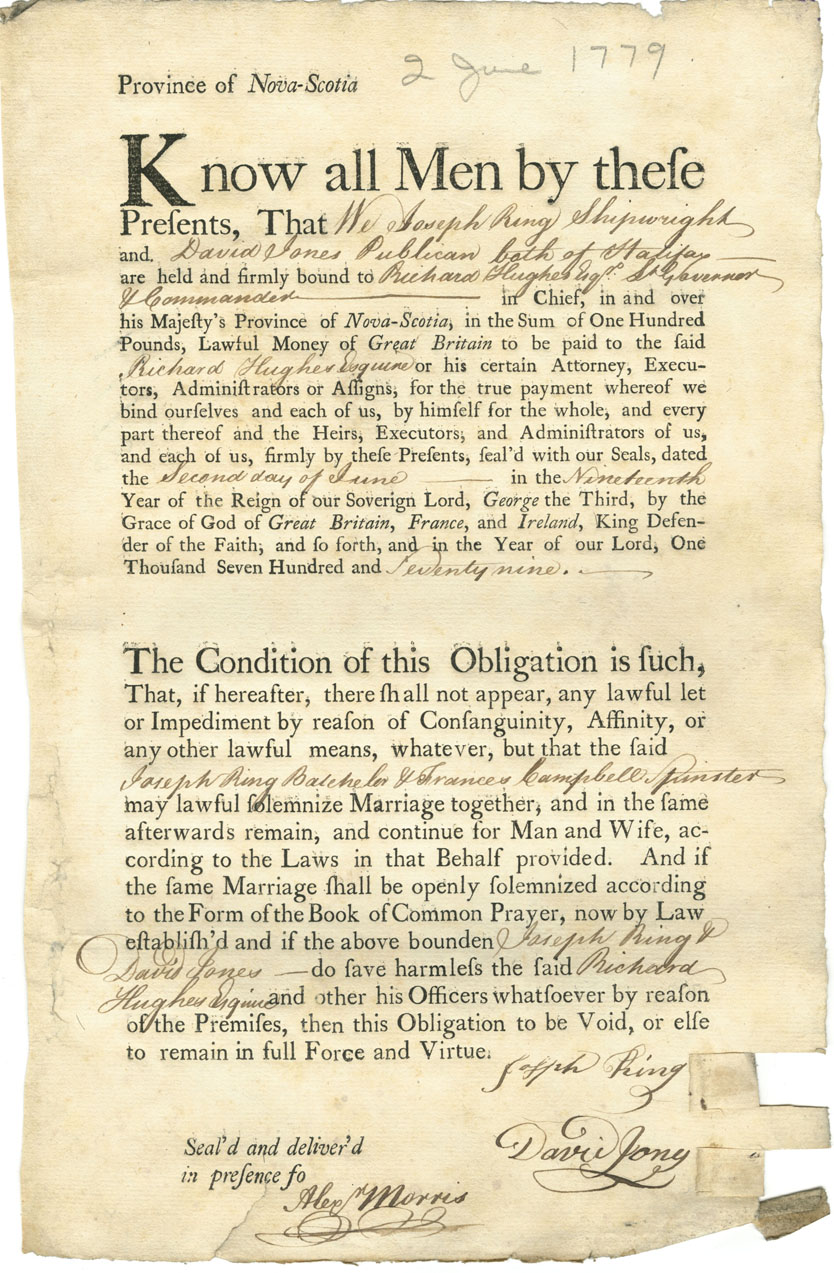 2 June 1779
Province of Nova-Scotia
Know all Men by theſe
Preſents, That We Joseph Ring Shipwright
and. David Jones Publican both of Halifax
are held and firmly bound to Richard Hughes Esqr. Lt. Governor
& Commander in Chief, in and over
his Majeſty's Province of Nova-Scotia, in the Sum of One Hundred
Pounds, Lawful Money of Great Britain to be paid to the ſaid
Richard Hughes Esquire or his certain Attorney, Execu-
tors, Adminiſtrators or Aſſigns, for the true payment whereof we
bind ourſelves and each of us, by himſelf for the whole, and every
part thereof and the Heirs, Executors, and Adminiſtrators of us,
and each of us, firmly by theſe Preſents, ſeal'd with our Seals, dated
the Second day of June in the Nineteenth
Year of the Reign of our Soverign Lord, George the Third, by the
Grace of God of Great Britain, France, and Ireland, King Defen-
der of the Faith, and ſo forth, and in the Year of our Lord, One
Thouſand Seven Hundred and Seventy nine.
The Condition of this Obligation is ſuch,
That, if hereafter, there ſhall not appear, any lawful let
or Impediment by reaſon of Conſanguinity, Affinity, or
any other lawful means, whatever, but that the ſaid
Joseph Ring Batchelor & Frances Campbell Spinster
may lawful ſolemnize Marriage together, and in the ſame
afterwards remain, and continue for Man and Wife, ac-
cording to the Laws in that Behalf provided. And if
the ſame Marriage ſhall be openly ſolemnized according
to the Form of the Book of Common Prayer, now by Law
eſtabliſh'd and if the above bounden Joseph Ring &
David Jones — do ſave harmleſs the ſaid Richard
Hughes Esquire and other his Officers whatſoever by reaſon
of the Premiſes, then this Obligation to be Void, or elſe
to remain in full Force and Virtue.
Joseph Ring
David Jones
Seal'd and deliver'd
in preſence fo
Alexr Morris